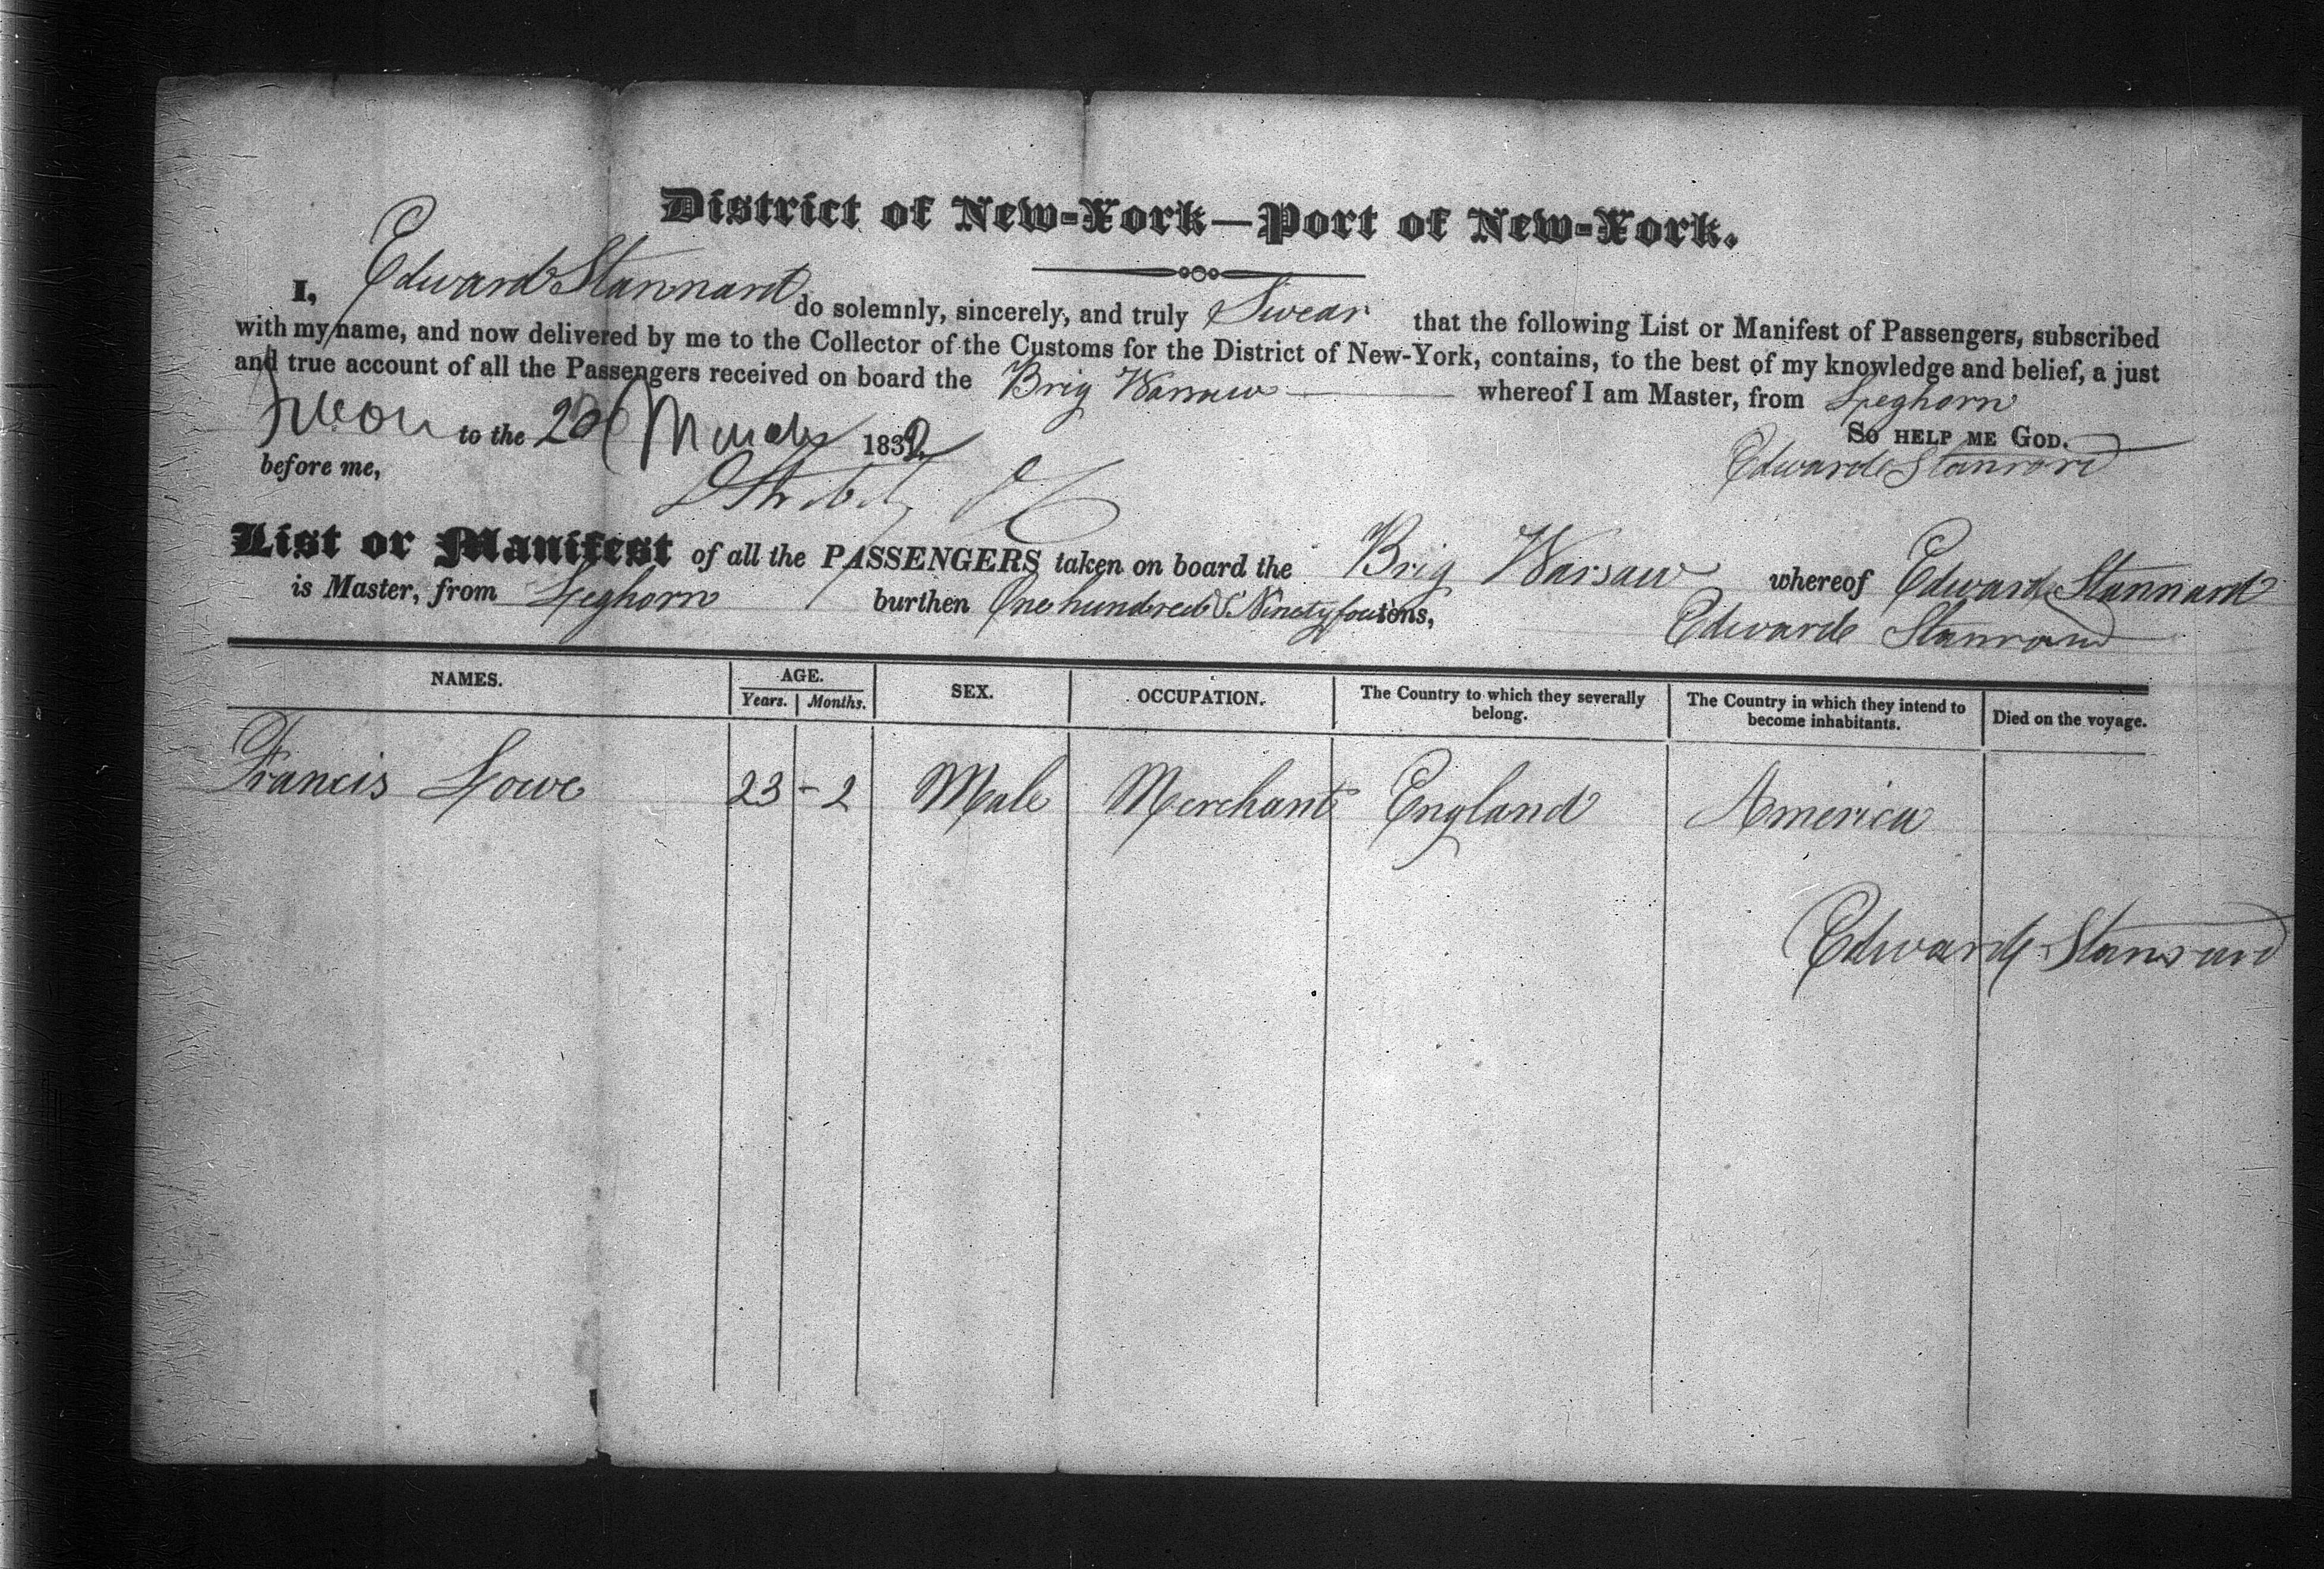 District of New-York—Port of New-York.
I, Edward Stannard do solemnly, sincerely, and truly Swear that the following List or Manifest of Passengers, subscribed
with my name, and now delivered by me to the Collector of the Customs for the District of New-York, contains, to the best of my knowledge and belief, a just
and true account of all the Passengers received on board the Brig Warsaw whereof I am Master, from Leghorn
Sworn to the 20 March 1832 So help me God.
before me, Edward Stannard
List or Manifest of all the PASSENGERS taken on board the Brig Warsaw whereof Edward Stannard
is Master, from Leghorn burthen One hundred & Ninety four tons, Edward Stannard
NAMES. AGE. Years. Months. SEX. OCCUPATION. The Country to which they severally belong. The Country in which they intend to become inhabitants. Died on the voyage.
Francis Lowe 23 - 2 Male Merchant England America
Edward Stannard